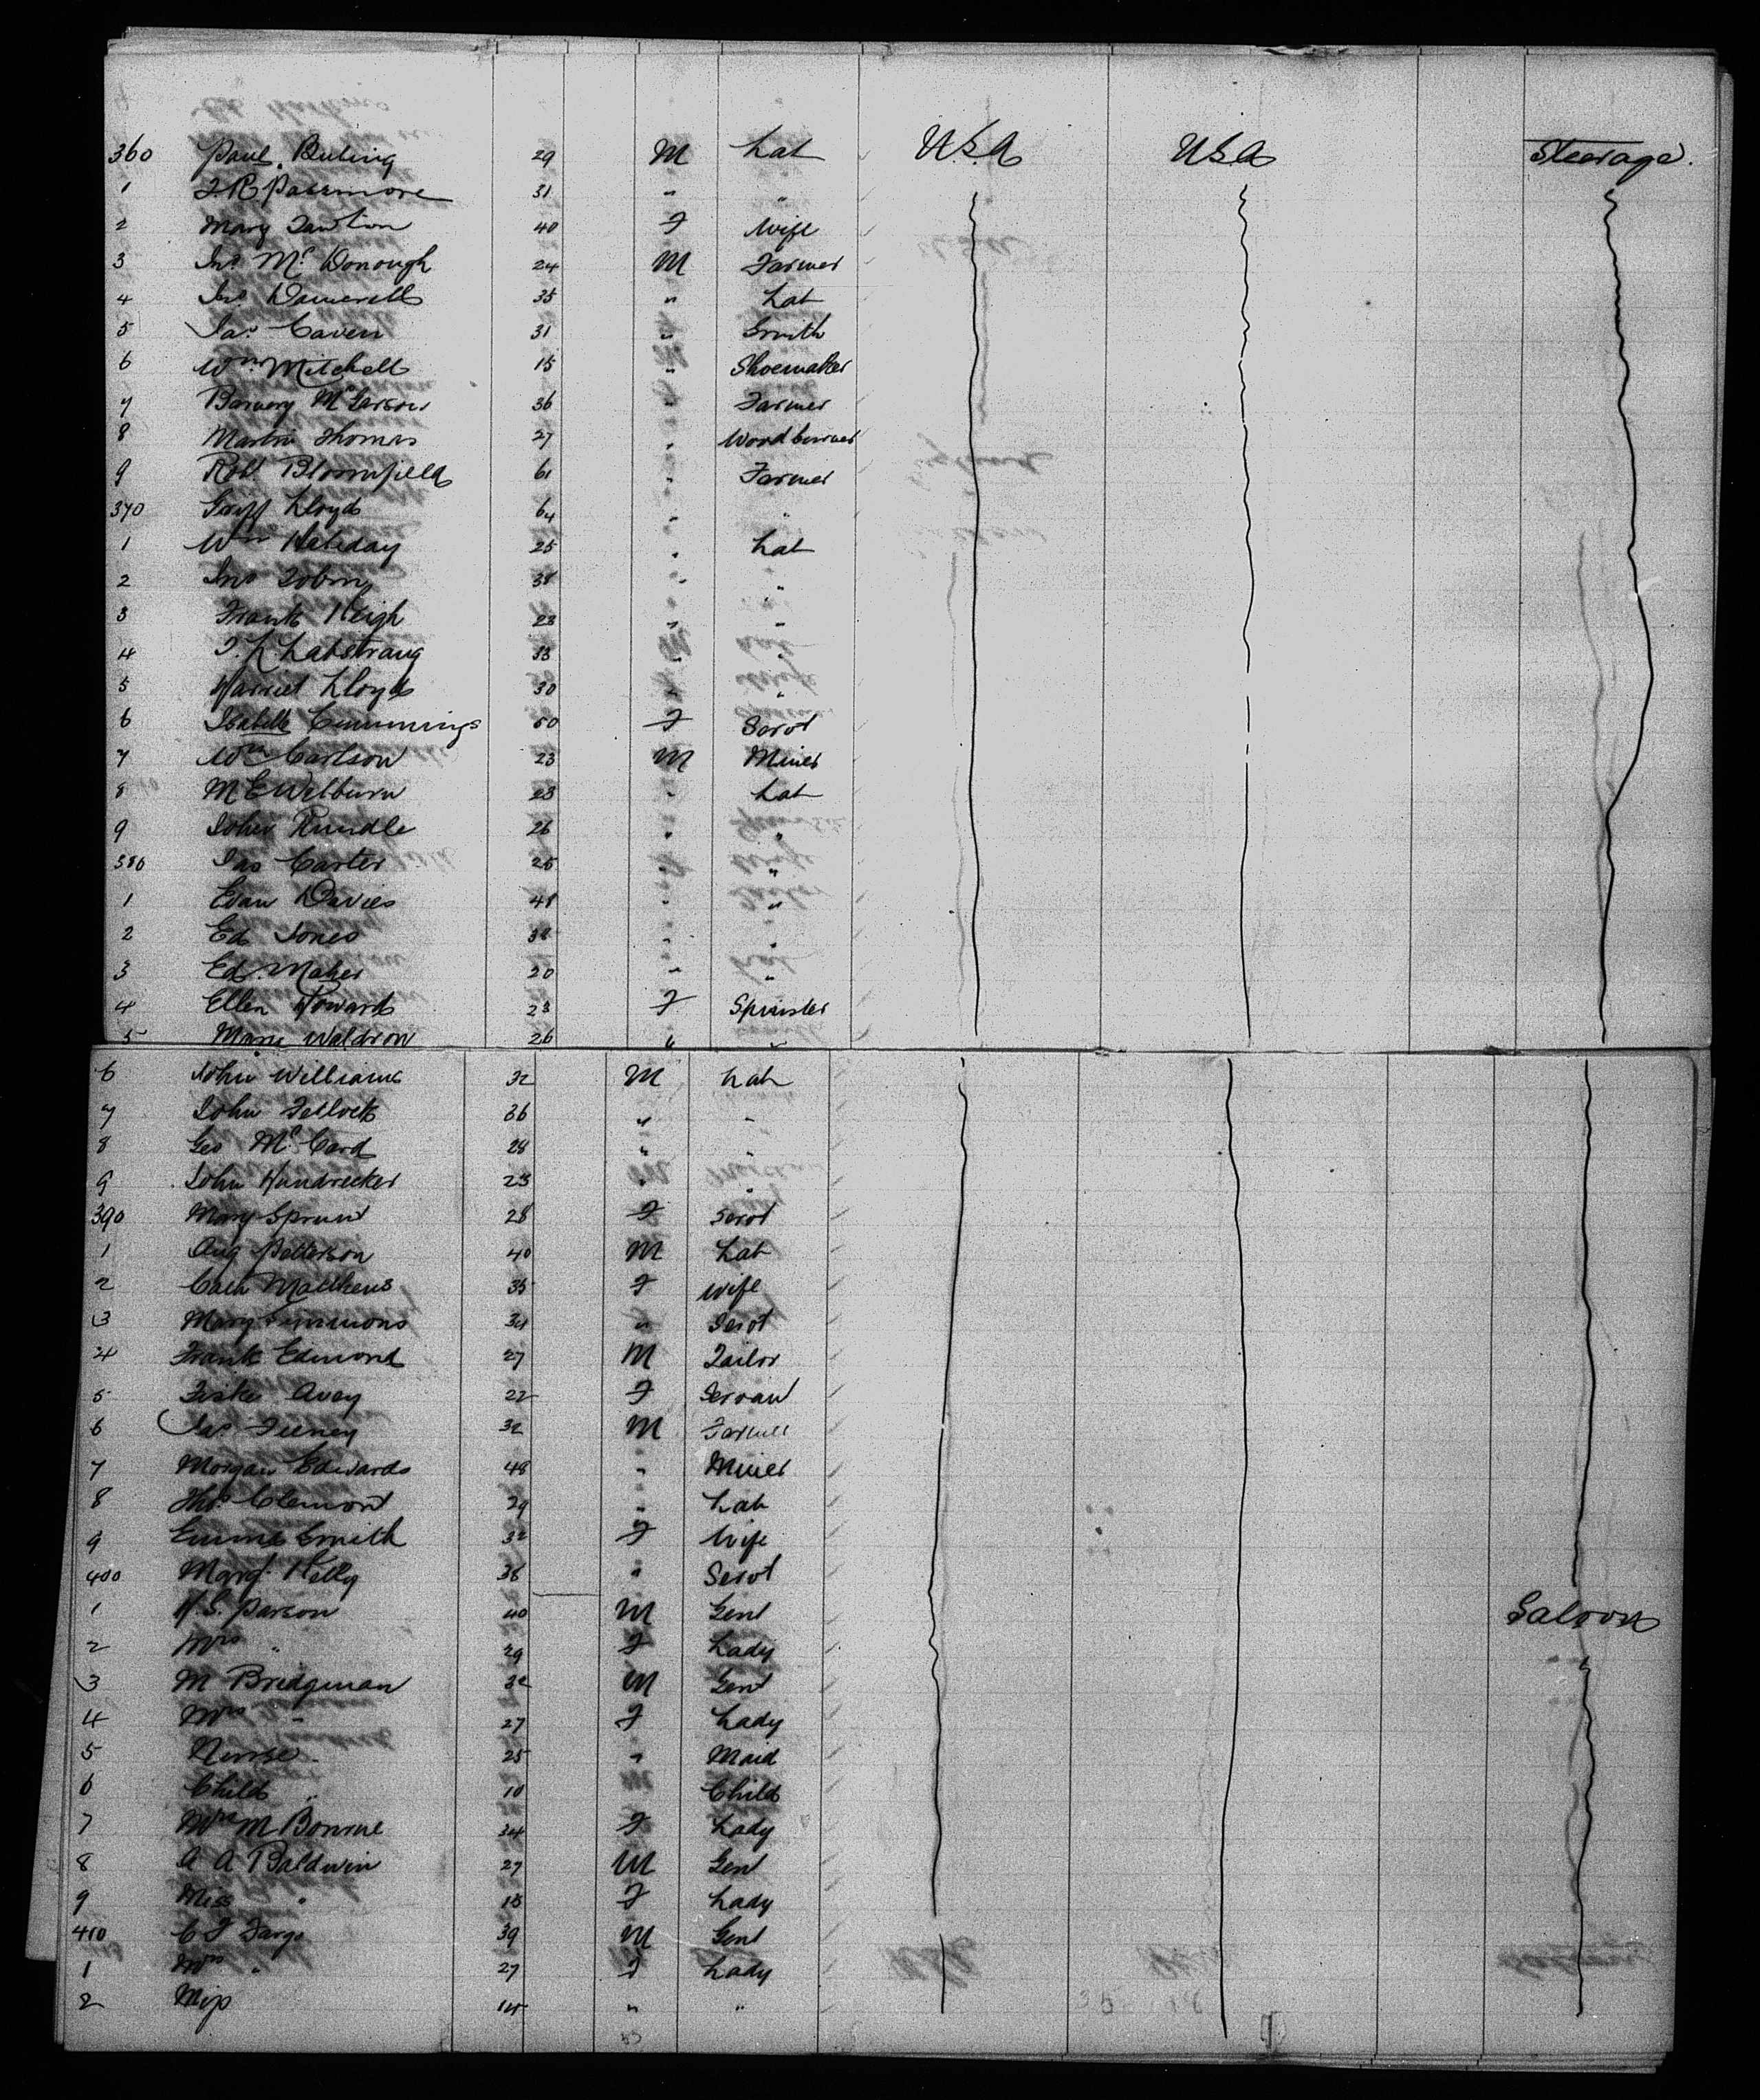 360 Paul Buling 29 M Lab U.S.A USA Steerage.
1 J.R. Passmore 31 " "
2 Mary Lawton 40 F Wife
3 Jno McDonough 24 M Farmer
4 Jno Damerell 35 " Lab
5 Jas Caven 31 " Smith
6 Wm Mitchell 15 " Shoemaker
7 Barney McGarson 36 " Farmer
8 Martin Thomas 27 " Woodburner
9 Robt Bloomfield 61 " Farmer
370 Griff Lloyd 64 " "
1 Wm Haliday 25 " Lab
2 Jno Tobin 38 " "
3 Frank Keigh 23 " "
4 33 " "
5 Harriet Lloyd 30 " "
6 Isabella Cummings 50 F Servt
7 Wm Carlson 23 M Miner
8 M E Welburn 23 " Lab
9 John Rundle 26 " "
380 Jas Carter 25 " "
1 Evan Davies 48 " "
2 Ed Jones 38 " "
3 Ed. Maher 20 " "
4 Ellen Howard 23 F Spinster
5 Waldron 26 " "
6 John Williams 32 M Lab
7 John Tetlock 36 " "
8 Geo McCard 28 " "
9 John Hundrecker 23 " "
390 Mary Sprunt 28 F Servt
1 Aug Petterson 40 M Lab
2 Cath Matthews 35 F Wife
3 Mary Simmons 34 " Servt
4 Frank Edmond 27 M Tailor
5 Avey 22 F Servant
6 Jas Feeney 32 M Farmer
7 Morgan Edwards 48 " Miner
8 Thos Clemont 29 " Lab
9 Emma Smith 32 F Wife
400 Margt Kelly 36 " Servt
1 H.S. Parson 40 M Gent Saloon
2 Mrs " 29 F Lady
3 M Bridgman 32 M Gent
4 Mrs " 27 F Lady
5 Nurse 25 " Maid
6 Child " 10 Child
7 Mrs M Bonnne 34 F Lady
8 A A Baldwin 27 M Gent
9 Miss " 18 F Lady
410 C F Fargo 39 M Gent
1 Mrs " 27 F Lady
2 Miss 14 " "